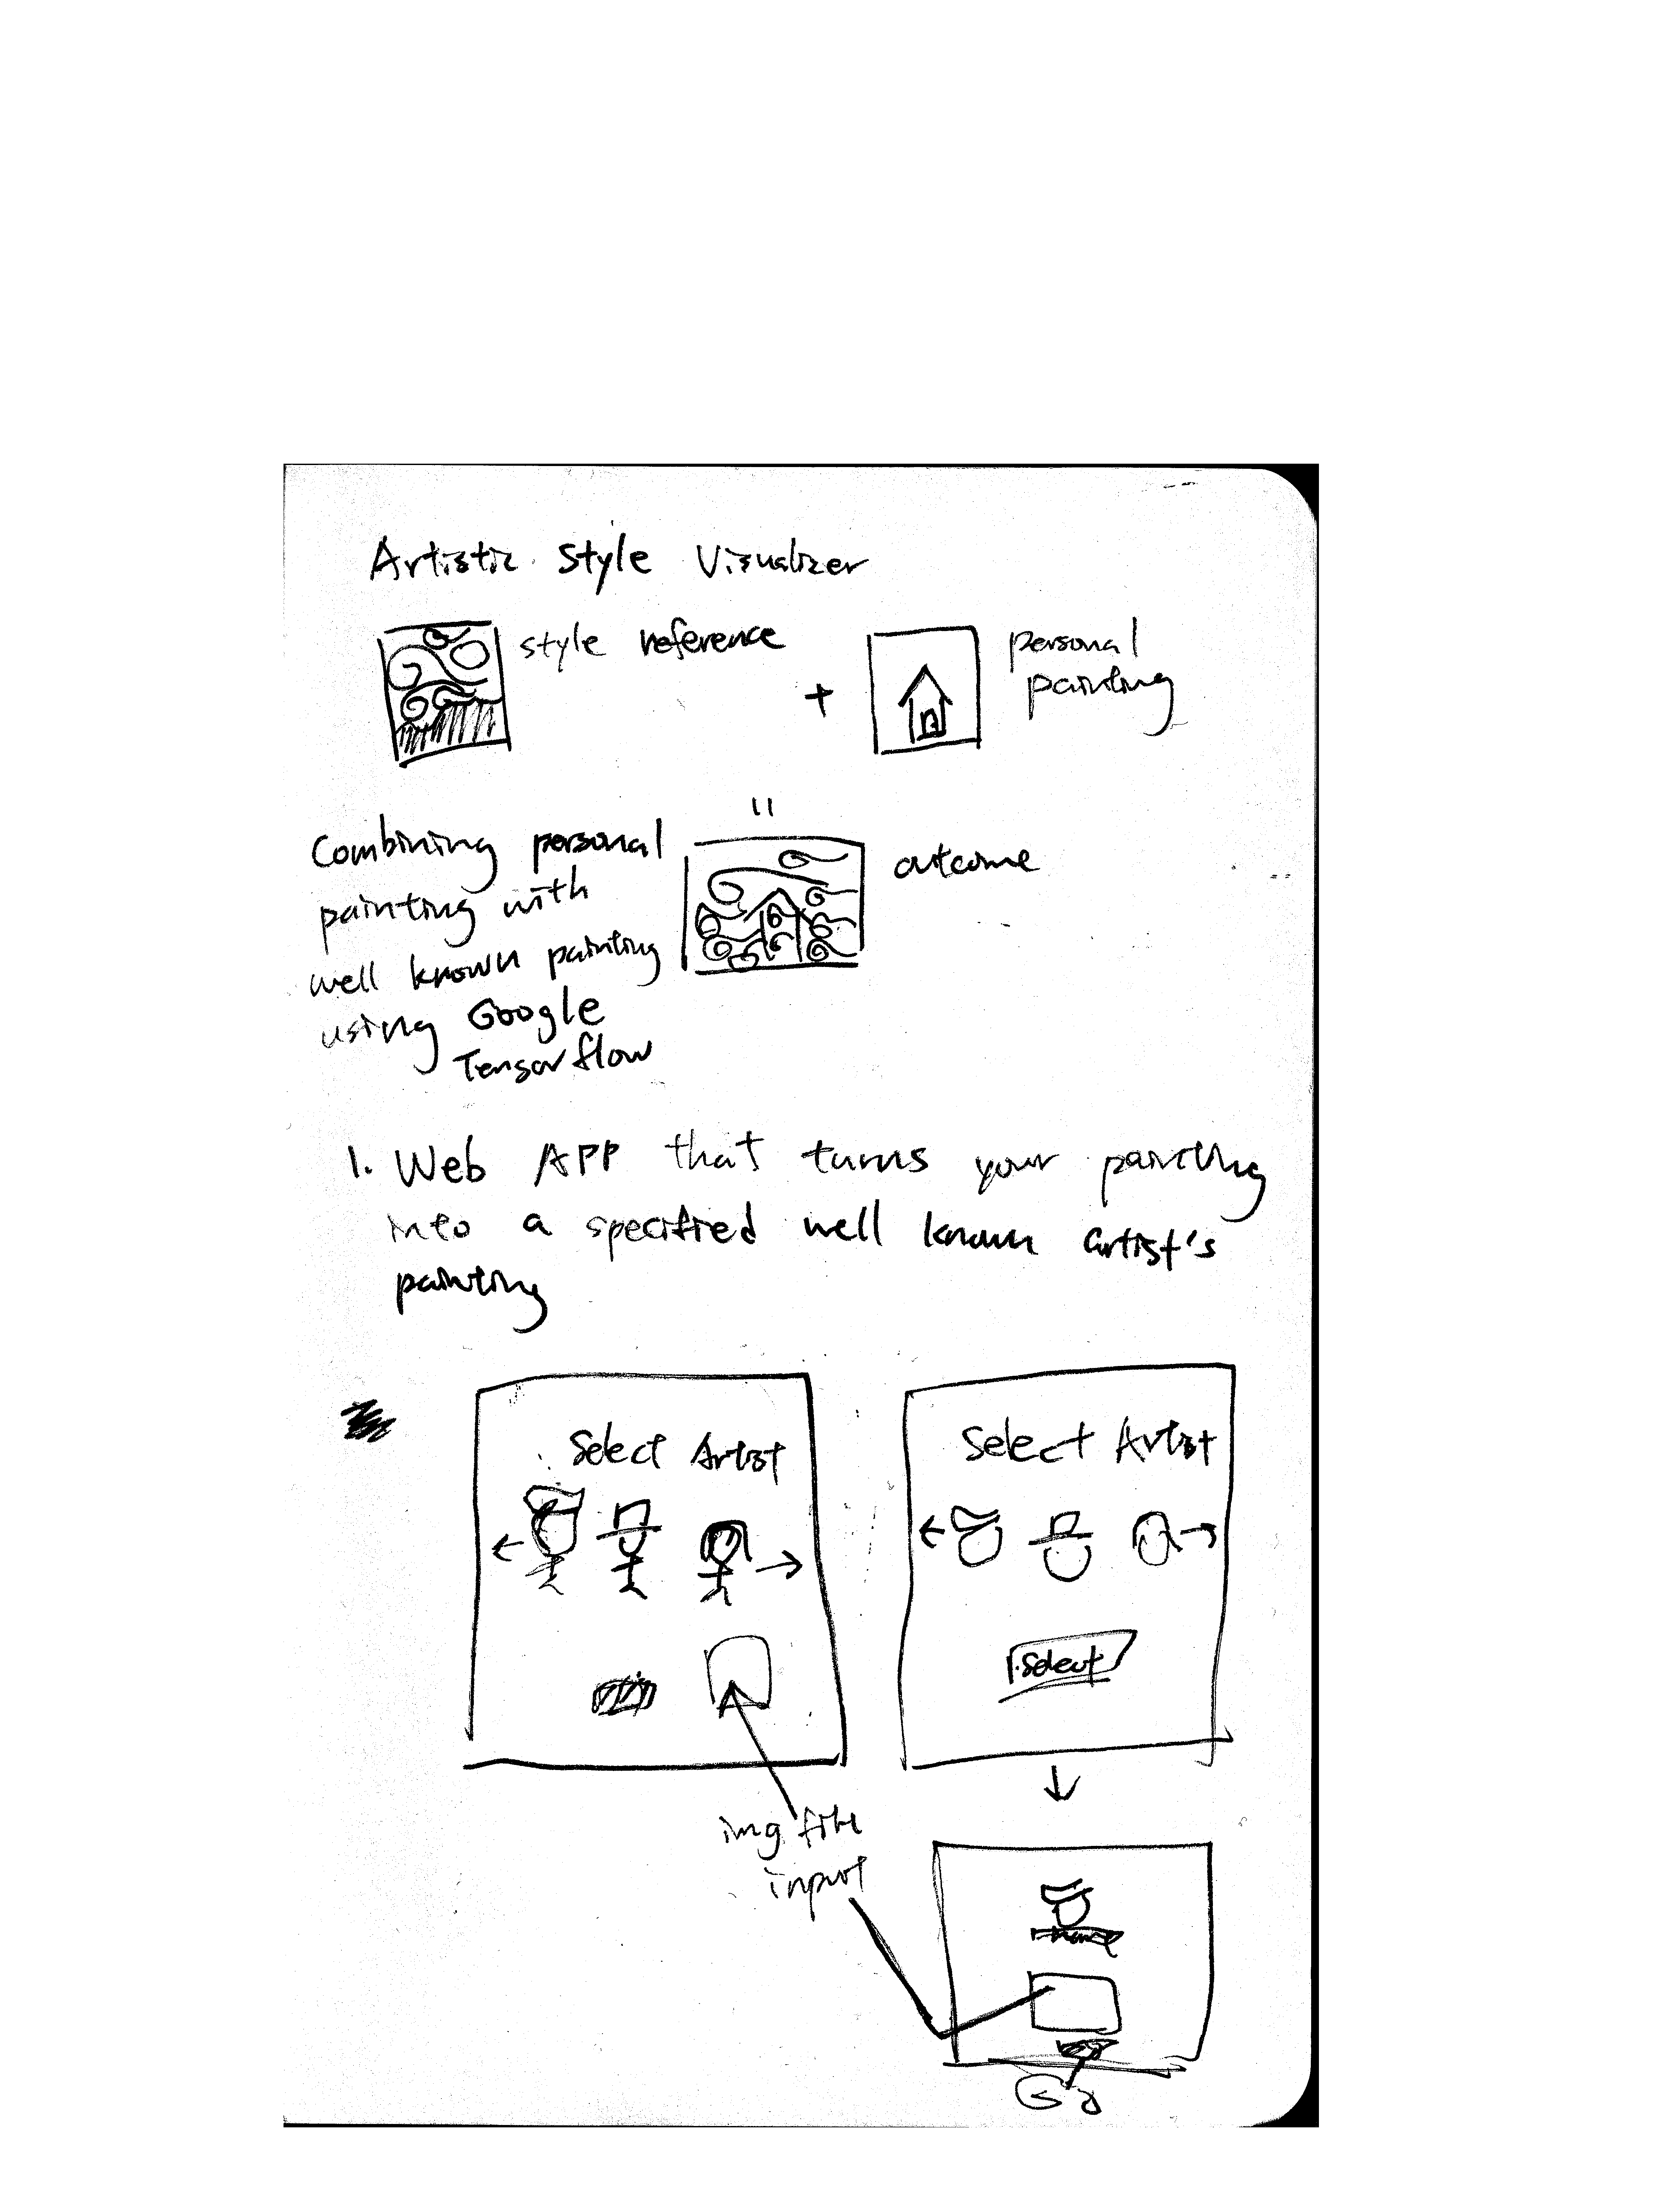 Artistic Style Visualizer
style reference
+
personal
painting
=
Combining personal
painting with
well known painting
using Google
Tensorflow
outcome
1. Web APP that turns your painting
into a specified well known artist's
painting
Select Artist
Select Artist
Select
img file
input